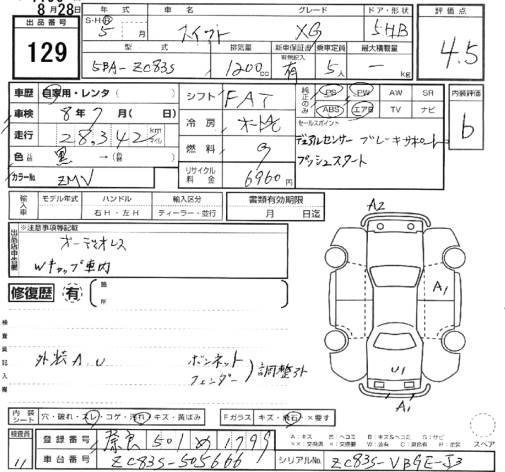 8月28日
出品番号
129
年式 車名 グレード ドア・形状 評価点
S・H・R 5 月 スイフト XG 5HB 4.5
型式 排気量 新車保証書 乗車定員 最大積載量
有無記入
5BA-ZC83S 1200cc 有 5人 — kg
車歴 自家用・レンタ( ) シフト FAT 純正のみ PS PW AW SR 内装評価
車検 8年7月(日) 冷房 オートAC ABS エアB TV ナビ b
走行 28,342 km マイル セールスポイント
デュアルセンサーブレーキサポート
色 黒→( ) 燃料 プッシュスタート
カラーNo. ZMV リサイクル料金 6960円
輸入車 モデル年式 ハンドル 輸入区分 書類有効期限
年 右H・左H ディーラー・並行 月 日迄
※注意事項等記載
オーディオレス
Wキャップ車内
修復歴 有 箇所
検査員記入欄
外装A,U ボンネット
フェンダー 調整外
A2
A1
U1
A1
内装シート 穴・破れ・スレ・コゲ・汚れ・キズ・黄ばみ Fガラス キズ・飛石・×要す
検査員 11
登録番号 奈良 501 め 1799
A:キズ U:ヘコミ B:キズ&ヘコミ S:サビ スペア
車台番号 ZC83S-505666 シリアルNo. ZC83S-VBGE-S3